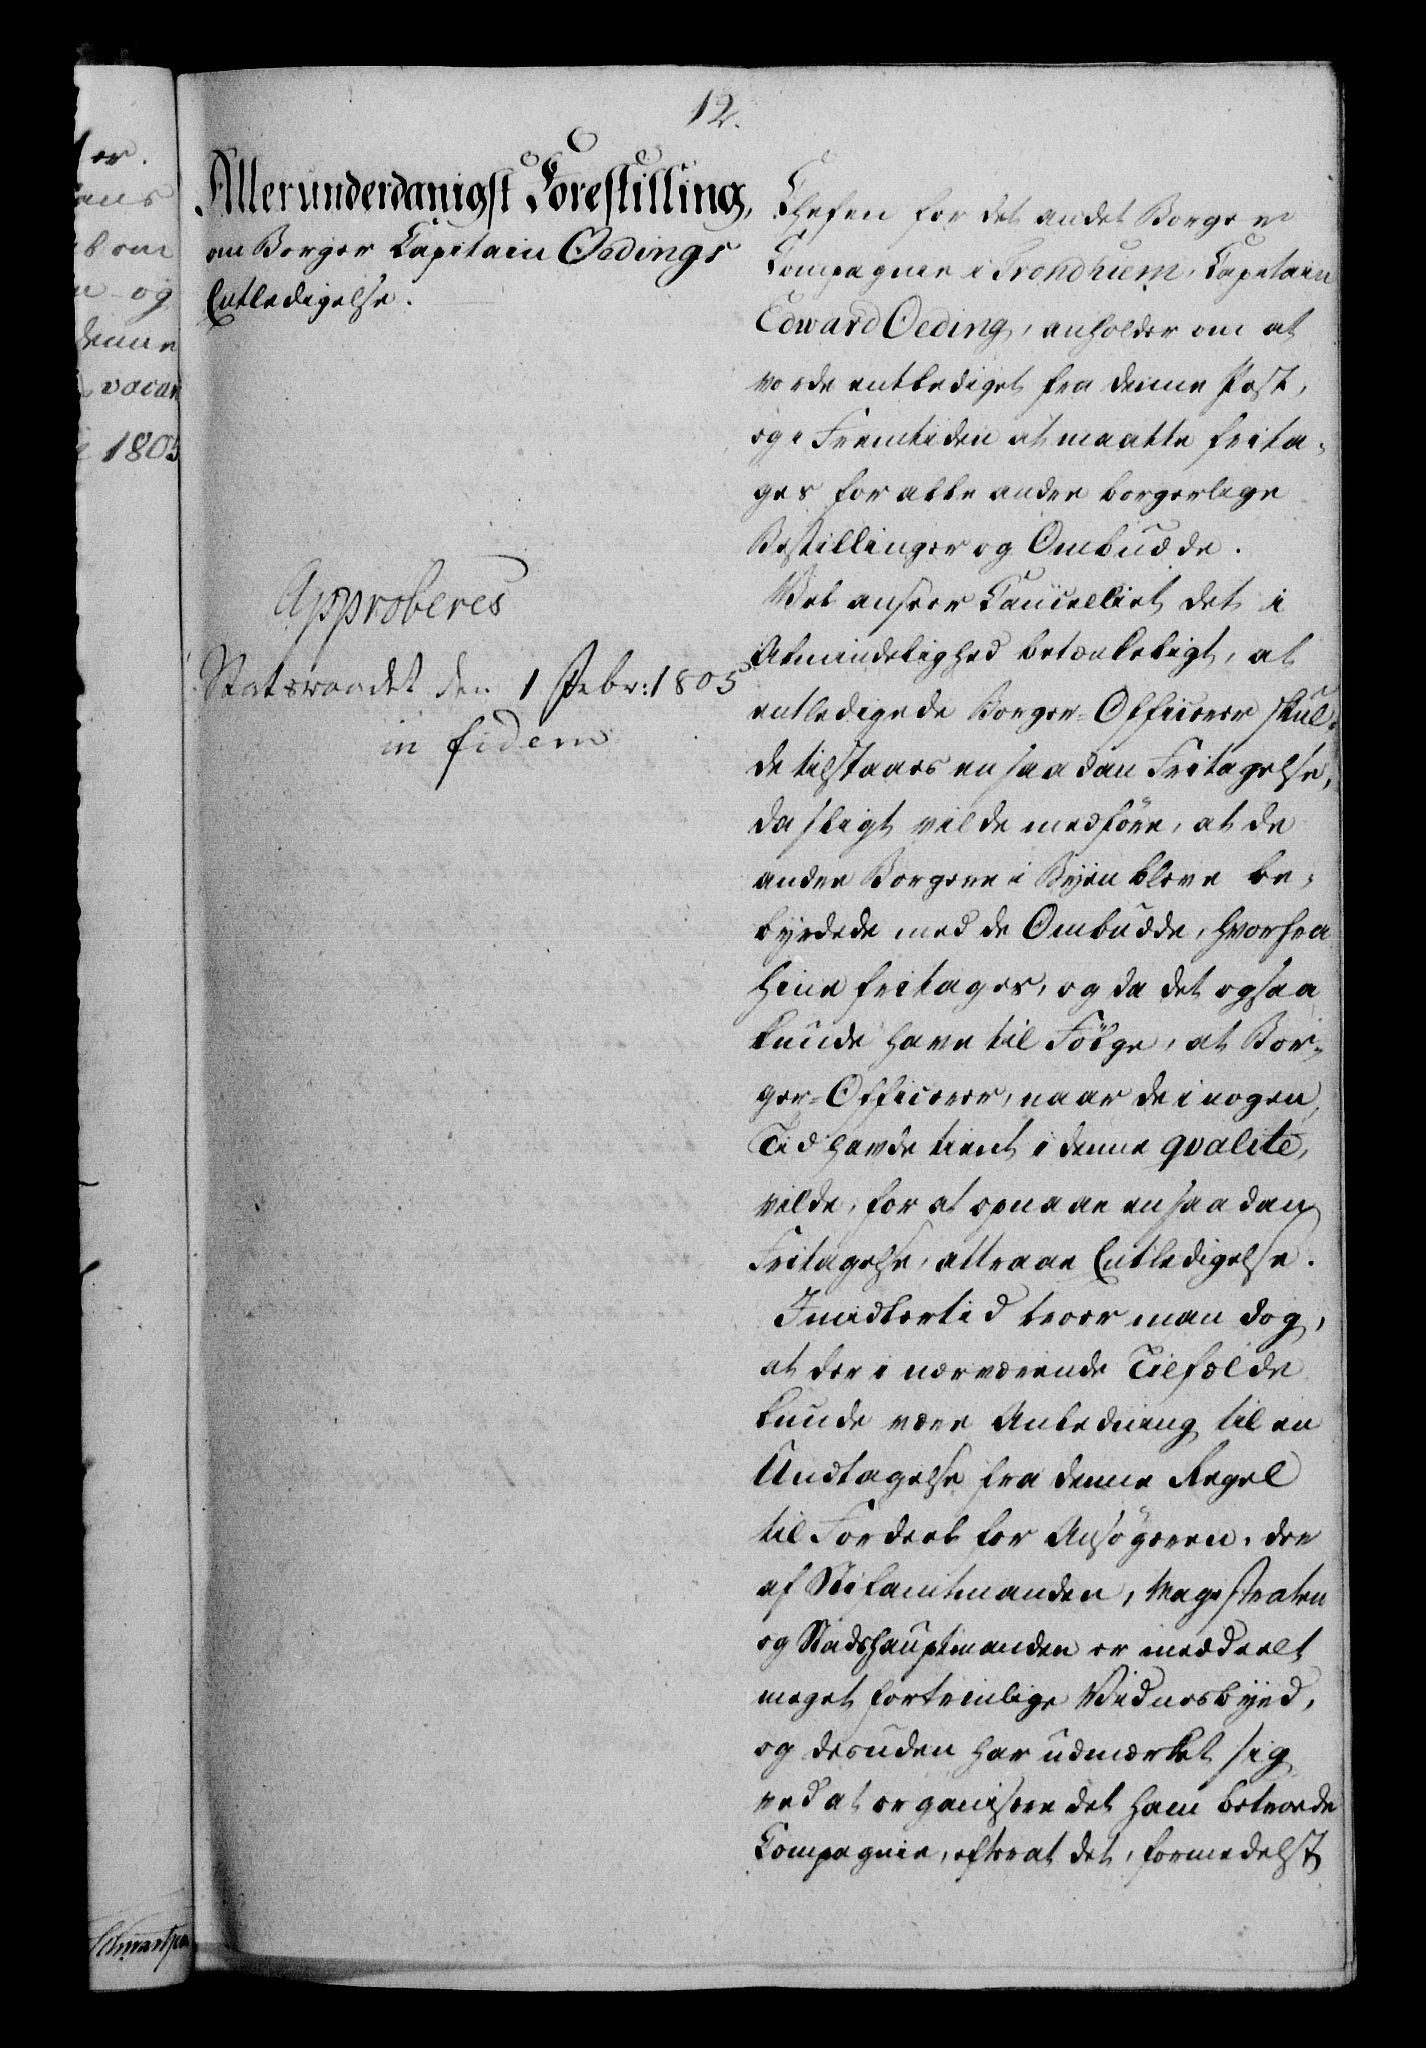 12.
Allerunderdanigst Forestilling,
om Borger Capitain Oedings
Entledigelse.
Approberes
Statsraadet den 1 Febr: 1805
in fidem
Chefen for det andet Borger
Compagnie i Trondhiem, Capitain
Edward Oeding, anholder om at
vorde entlediget fra denne Post,
og i Fremtiden at maatte frita-
ges for alle andre borgerlige
Bestillinger og Ombudde.
Vel anseer Cancelliet det i
Almindelighed betænkeligt, at
entledigede Borger-Officerer skul-
de tilstaaes en saadan Fritagelse,
da sligt vilde medföre, at de
andre Borgere i Byen bleve be-
byrdede med de Ombudde, hvorfra
hine fritages, og da det ogsaa
kunde have til Fölge, at Bor-
ger-Officerer, naar de i nogen
Tid havde tient i denne qvalité,
vilde, for at opnaae en saadan
Fritagelse, attraae Entledigelse.
Imidlertid troer man dog,
at der i nærværende Tilfælde
kunde være Anledning til en
Undtagelse fra denne Regel
til Fordeel for Ansögeren, der
af Stiftamtmanden, Magistraten
og Stadshauptmanden er meddeelt
meget fortrinlige Vidnesbyrd,
og desuden har udmærket sig
ved at organisere det ham betroede
Compagnie, efterat det, formedelst
er.
ans
om
og
denne
vacan
1805